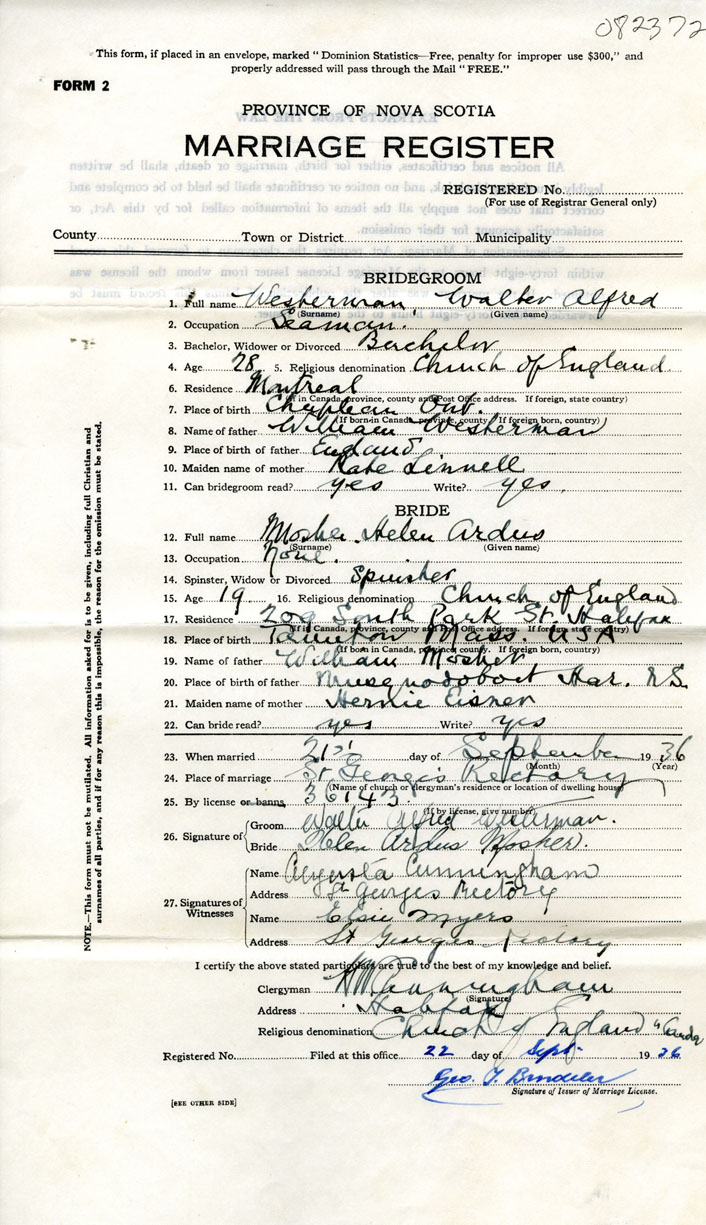 082372
This form, if placed in an envelope, marked "Dominion Statistics—Free, penalty for improper use $300," and
properly addressed will pass through the Mail "FREE."
FORM 2
PROVINCE OF NOVA SCOTIA
MARRIAGE REGISTER
REGISTERED No.
(For use of Registrar General only)
County Town or District Municipality
BRIDEGROOM
1. Full name Westerman, Walter Alfred
(Surname) (Given name)
2. Occupation Seaman.
3. Bachelor, Widower or Divorced Bachelor
4. Age 28 5. Religious denomination Church of England
6. Residence Montreal
(If in Canada, province, county and Post Office address. If foreign, state country)
7. Place of birth Chapleau Ont.
(If born in Canada, province, county. If foreign born, country)
8. Name of father William Westerman
9. Place of birth of father England
10. Maiden name of mother Kate Linnell
11. Can bridegroom read? yes Write? yes.
BRIDE
12. Full name Mosher Helen Ardus
(Surname) (Given name)
13. Occupation None.
14. Spinster, Widow or Divorced Spinster
15. Age 19 16. Religious denomination Church of England
17. Residence 209 South Park St. Halifax
(If in Canada, province, county and Post Office address. If foreign state country)
18. Place of birth Taunton Mass. USA
(If born in Canada, province, county. If foreign born, country)
19. Name of father William Mosher
20. Place of birth of father Musquodoboit Har. N.S.
21. Maiden name of mother Eisner
22. Can bride read? yes Write? yes
23. When married 21st day of September 1936
(Month) (Year)
24. Place of marriage St George's Rectory
(Name of church or clergyman's residence or location of dwelling house)
25. By license or banns 36143
(If by license, give number)
26. Signature of
Groom Walter Alfred Westerman.
Bride Helen Ardus Mosher.
27. Signatures of Witnesses
Name Augusta Cunningham
Address St Georges Rectory
Name Elsie Myers
Address St Georges Rectory
I certify the above stated particulars are true to the best of my knowledge and belief.
Clergyman Cunningham
(Signature)
Address Halifax
Religious denomination Church of England
Registered No. Filed at this office 22 day of Sept. 1936
Geo. T.
Signature of Issuer of Marriage License.
[SEE OTHER SIDE]
NOTE.—This form must not be mutilated. All information asked for is to be given, including full Christian and
surnames of all parties, and if for any reason this is impossible, the reason for the omission must be stated.